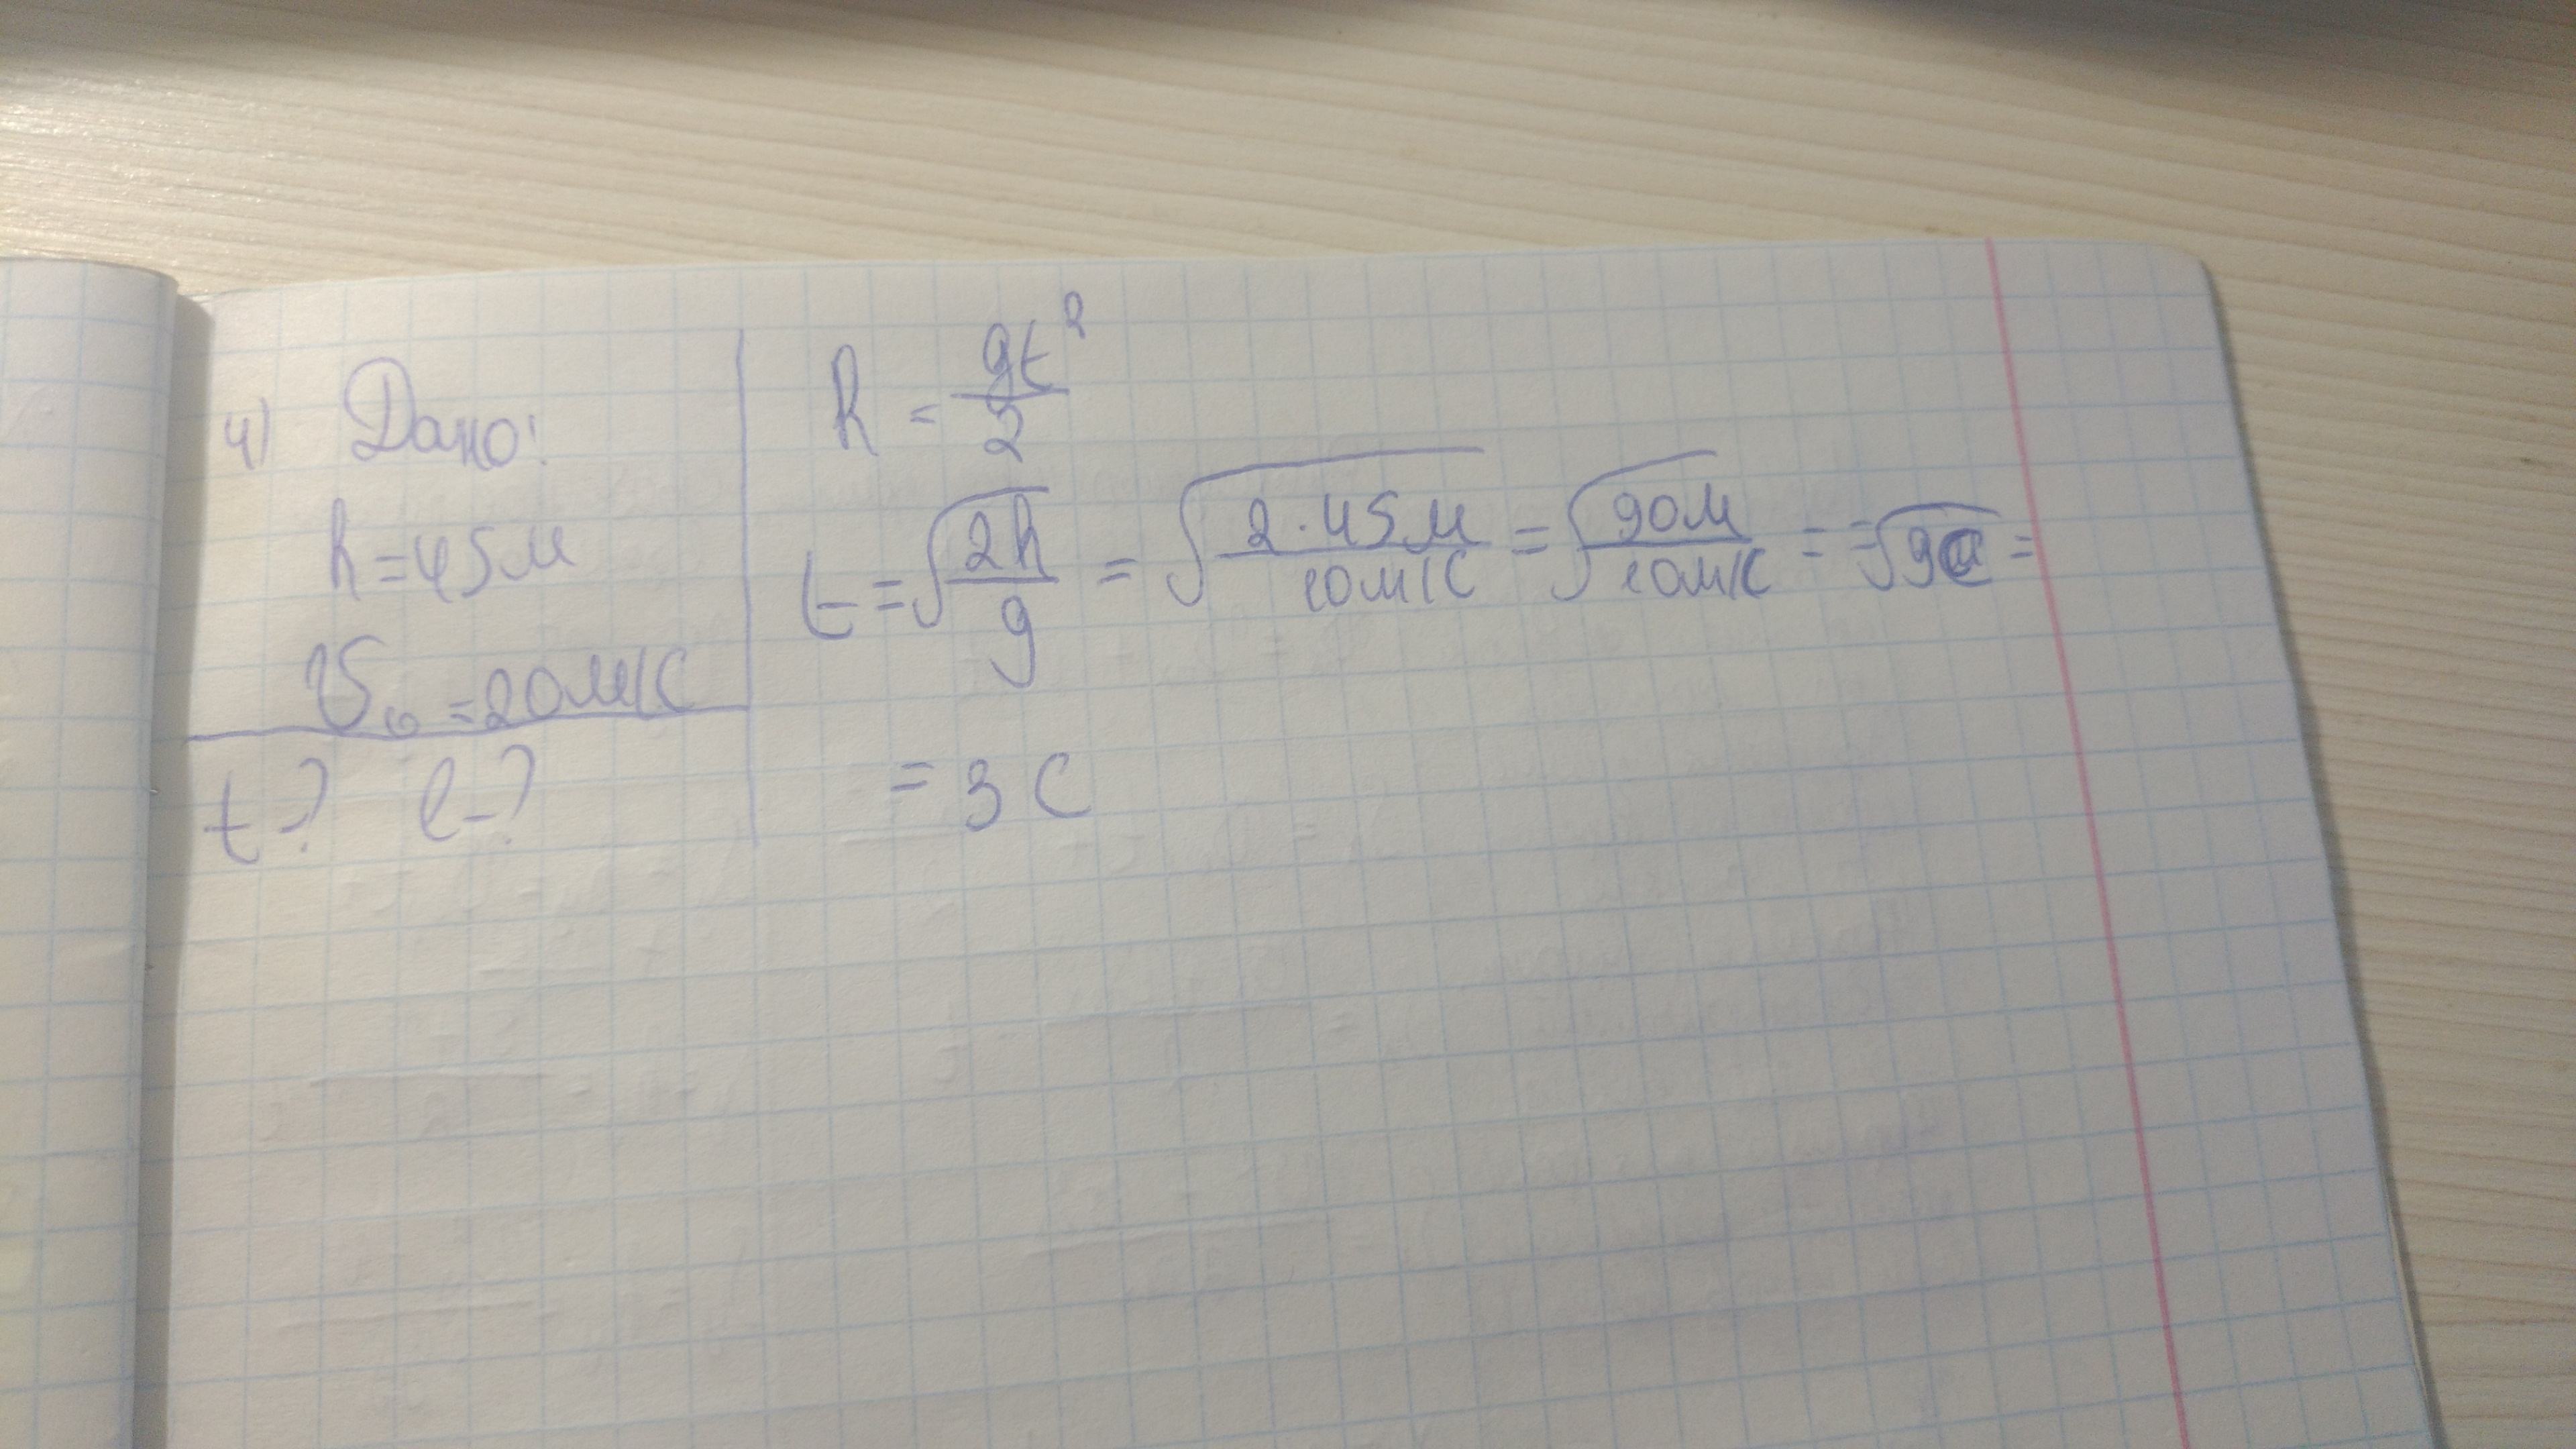 4) Дано:
h = 45м
V₀ = 20м/с
t-? l-?
h = gt²/2
t = √(2h/g) = √(2·45м/10м/с) = √(90м/10м/с) = = √9с =
= 3 с